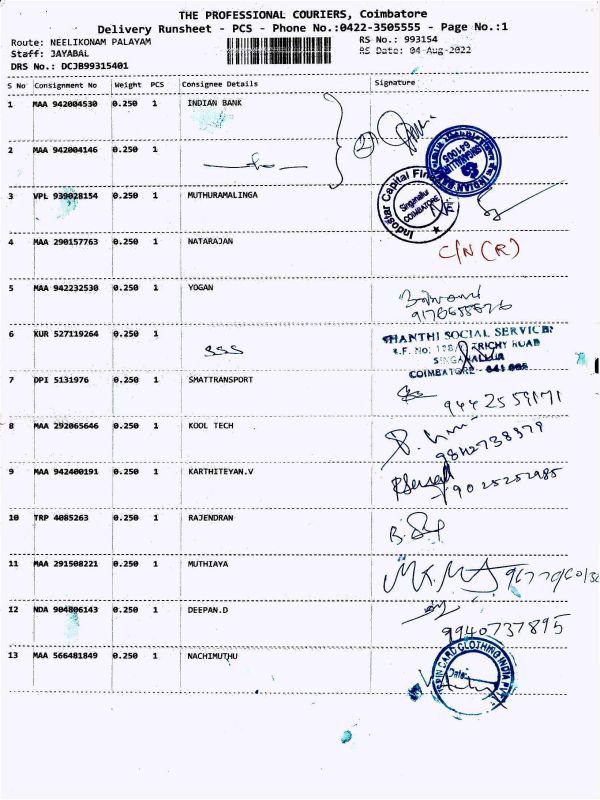 THE PROFESSIONAL COURIERS, Coimbatore
Delivery Runsheet - PCS - Phone No.:0422-3505555 - Page No.:1
Route: NEELIKONAM PALAYAM
RS No.: 993154
Staff: JAYABAL
RS Date: 04-Aug-2022
DRS No.: DCJB99315401
S No Consignment No Weight PCS Consignee Details Signature
1 MAA 942004530 0.250 1 INDIAN BANK
2 MAA 942004146 0.250 1
2
641005
Indostar Capital Fin
Singanallur
COIMBATORE
3 VPL 939028154 0.250 1 MUTHURAMALINGA
4 MAA 290157763 0.250 1 NATARAJAN C/N (R)
5 MAA 942232530 0.250 1 YOGAN
6 KUR 527119264 0.250 1 SSS
SHANTHI SOCIAL SERVICES
TRICHY ROAD
SINGANALLUR
COIMBATORE - 641 005
7 DPI 5131976 0.250 1 SMATTRANSPORT
9442559171
8 MAA 292065646 0.250 1 KOOL TECH
9842738379
9 MAA 942400191 0.250 1 KARTHITEYAN.V
9025252985
10 TRP 4085263 0.250 1 RAJENDRAN
11 MAA 291508221 0.250 1 MUTHIAYA
12 NDA 904806143 0.250 1 DEEPAN.D
9940737895
13 MAA 566481849 0.250 1 NACHIMUTHU
CARD CLOTHING INDIA PVT
Date: